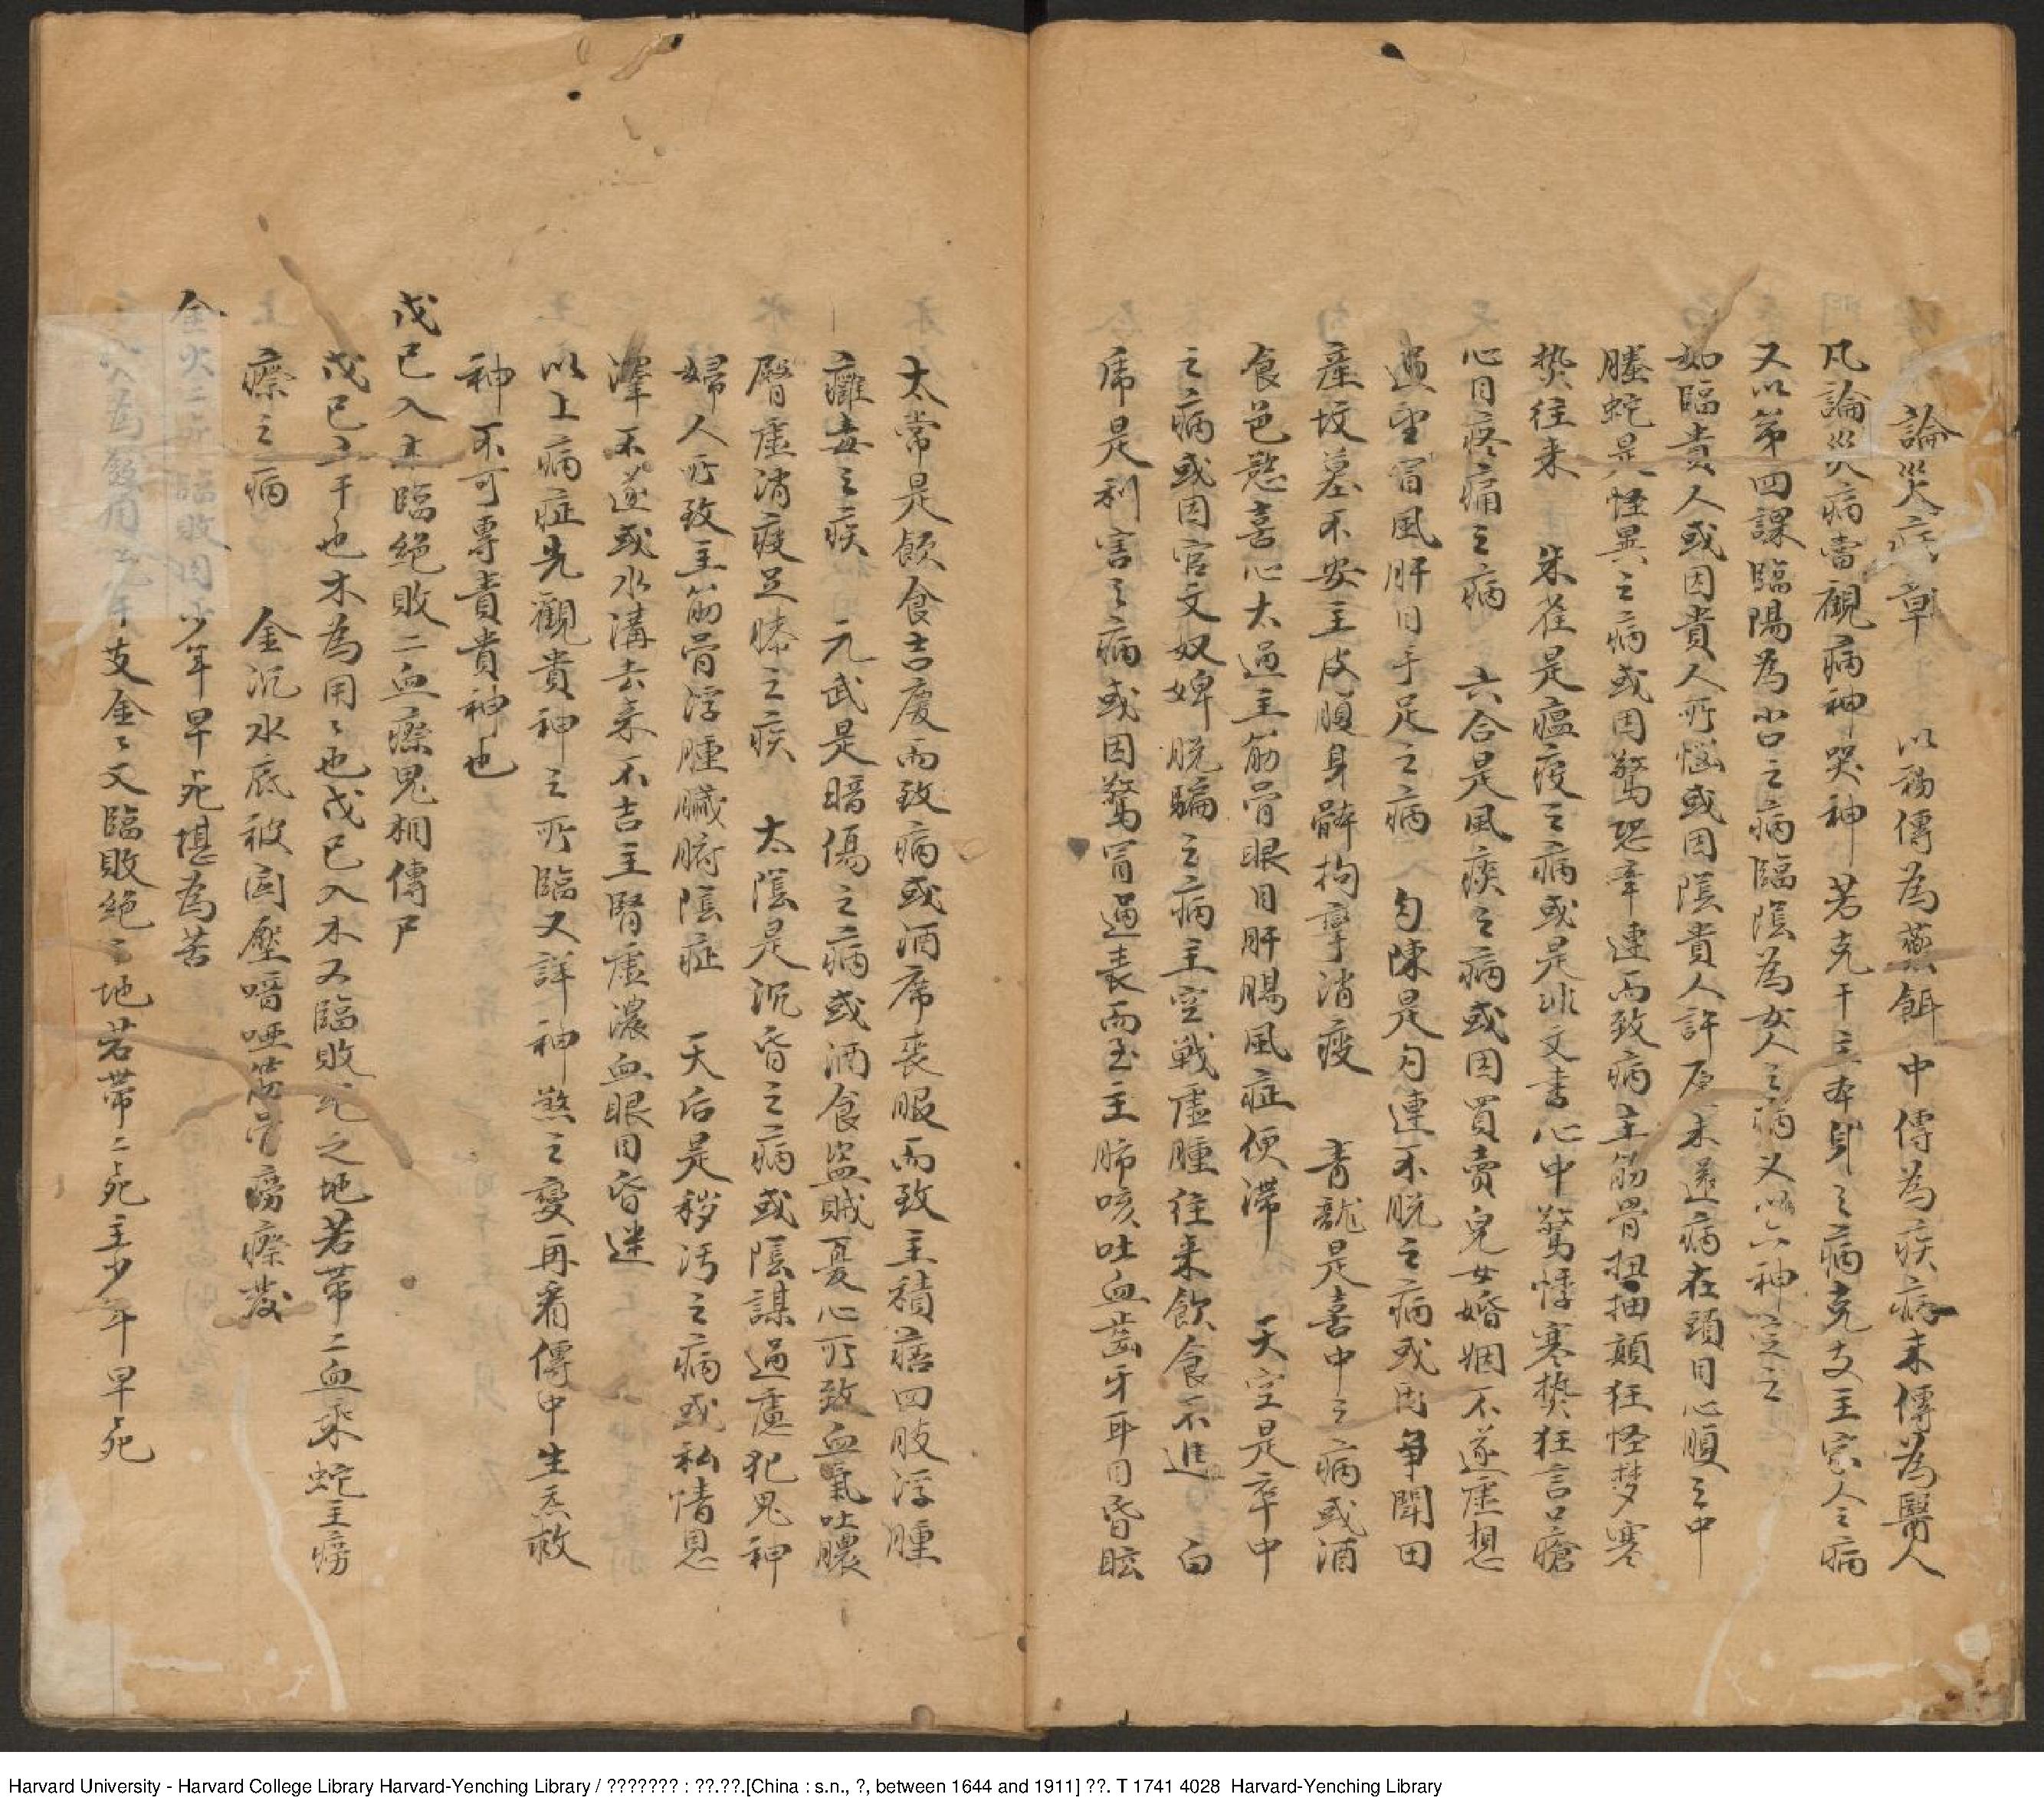 論災病章 以初傳為藥餌中傳為疾病末傳為醫人
凡論災病當觀病神哭神 若克干主本身之病克支主家人之病
又以第四課臨陽為占之病臨陰為女人之病又以六神定之
如臨貴人或因貴人所惱或因陰貴人許原未還病在頭目心順之中
螣蛇是怪異之病或因驚恐牽連而致病主筋骨扭抽顛狂怪梦寒
𤍠往来 朱雀是瘟疫之病或是非文書心中驚悸寒𤍠狂言口瘡
心目疼痛之病 六合是風疾之病或因買賣兒女婚姻不遂虚想
過望冒風肝目手足之病 勾陳是勾連不脱之病或因爭鬪田
産坟墓不安主皮順身體拘攣消瘦 青龍是喜中之病或酒
食色慾喜心太過主筋骨眼目肝腸風症便滞 天空是卒中
之病或因官文奴婢脱騙之病主空戰虚腫往来飲食不進 白
虎是利害之病或因驚冒過丧而至主肺咳吐血齒牙耳目昏眩
太常是飲食吉慶而致病或酒席丧服而致主積痞四肢浮腫
癰毒之疾 元武是暗傷之病或酒食盜賊憂心所致血氣吐膿
腎虚消疲足膝之疾 太陰是沉昏之病或陰謀過慮犯鬼神
婦人所致主筋骨浮腫臟腑陰症 天后是穢污之病或私情恩
澤不遂或水溝去来不吉主腎虚濃血眼目昏迷
以上病症先觀貴神之所臨又詳神煞之變再看傳中生炁救
神不可專責貴神也
戊己入木臨絕敗二血瘵鬼相傳尸
戊己土干也木為用〻也戊己入木又臨敗绝之地若帶二血乘蛇主癆
瘵之病 金沉水底被囚壓喑啞筋骨癆瘵發
金火二 臨敗因少年早死堪為苦
火為 用 干支金〻又臨敗絕之地若帶二死主少年早死
Harvard University - Harvard College Library Harvard-Yenching Library / ??????? : ??.??.[China : s.n., ?, between 1644 and 1911] ??. T 1741 4028 Harvard-Yenching Library